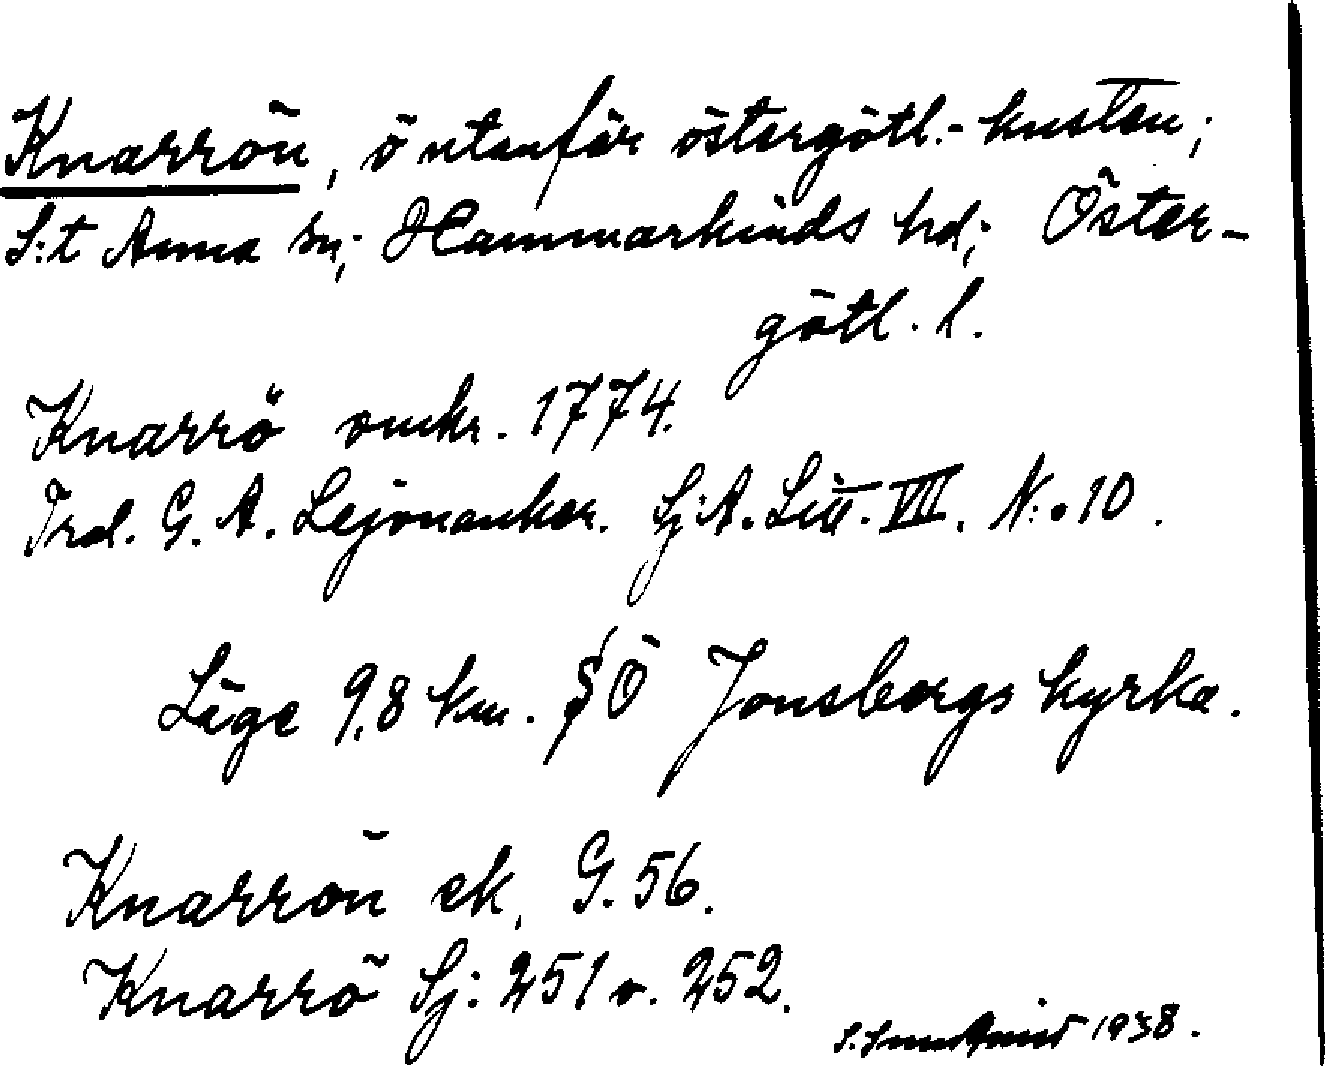 Knarrön, ö utanför östergötl.-kusten;
S:t Anna sn; Hammarkinds hd; Öster-
götl. l.
Knarrö omkr. 1774.
Trol. G. A. Lejonankar. Sj.A. Litt. VII. N:o 10.
Läge 9,8 km. SÖ Jonsbergs kyrka.
Knarrön ek, G. 56.
Knarrö Sj: 251 o. 252.
1938.